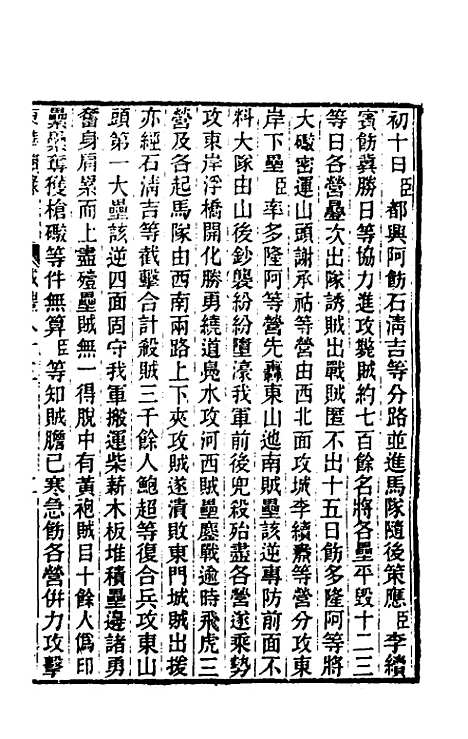 初十日臣都興阿飭石淸吉等分路並進馬隊隨後策應臣李續
賓飭冀勝日等協力進攻斃賊約七百餘名將各壘平毀十二三
等日各營壘次出隊誘賊出戰賊匿不出十五日飭多隆阿等將
大礮密運山頭謝承祜等營由西北面攻城李續燾等營分攻東
岸下壘臣率多隆阿等營先轟東山迤南賊壘該逆專防前面不
料大隊由山後鈔襲紛紛墮濠我軍前後兜殺殆盡各營遂乘勢
攻東岸浮橋開化勝勇繞道鳧水攻河西賊壘鏖戰逾時飛虎三
營及各起馬隊由西南兩路上下夾攻賊遂潰敗東門城賊出援
亦經石淸吉等截擊合計殺賊三千餘人鮑超等復合兵攻東山
頭第一大壘該逆四面固守我軍搬運柴薪木板堆積壘邊諸勇
奮身肩纍而上盡殪壘賊無一得脫中有黃袍賊目十餘人僞印
纍纍奪獲槍礮等件無算臣等知賊膽已寒急飭各營倂力攻擊